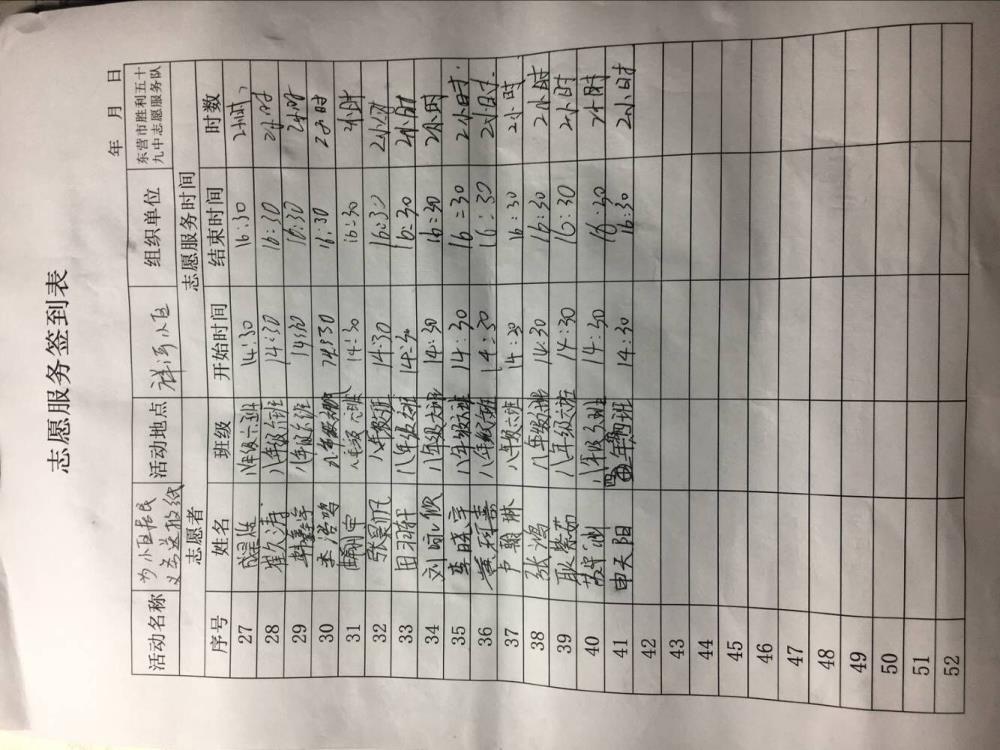 志愿服务签到表
年 月 日
活动名称 为小区居民义务送报纸 活动地点 祥河小区 组织单位 东营市胜利五十九中志愿服务队
志愿者 志愿服务时间
序号 姓名 班级 开始时间 结束时间 时数
27 八年级六班 14:30 16:30 2小时
28 崔久涛 八年级六班 14:30 16:30 2小时
29 韩鑫宇 八年级六班 14:30 16:30 2小时
30 李浩鸣 八年级六班 14:30 16:30 2小时
31 八年级六班 14:30 16:30 2小时
32 张昊帆 八年级六班 14:30 16:30 2小时
33 田羽轩 八年级六班 14:30 16:30 2小时
34 刘 八年级六班 14:30 16:30 2小时
35 李晓宇 八年级六班 14:30 16:30 2小时
36 黄科嘉 八年级六班 14:30 16:30 2小时
37 卢翰琳 八年级六班 14:30 16:30 2小时
38 张鸿 八年级六班 14:30 16:30 2小时
39 耿紫茹 八年级六班 14:30 16:30 2小时
40 八年级 班 14:30 16:30 2小时
41 申天阳 14:30 16:30 2小时
42
43
44
45
46
47
48
49
50
51
52